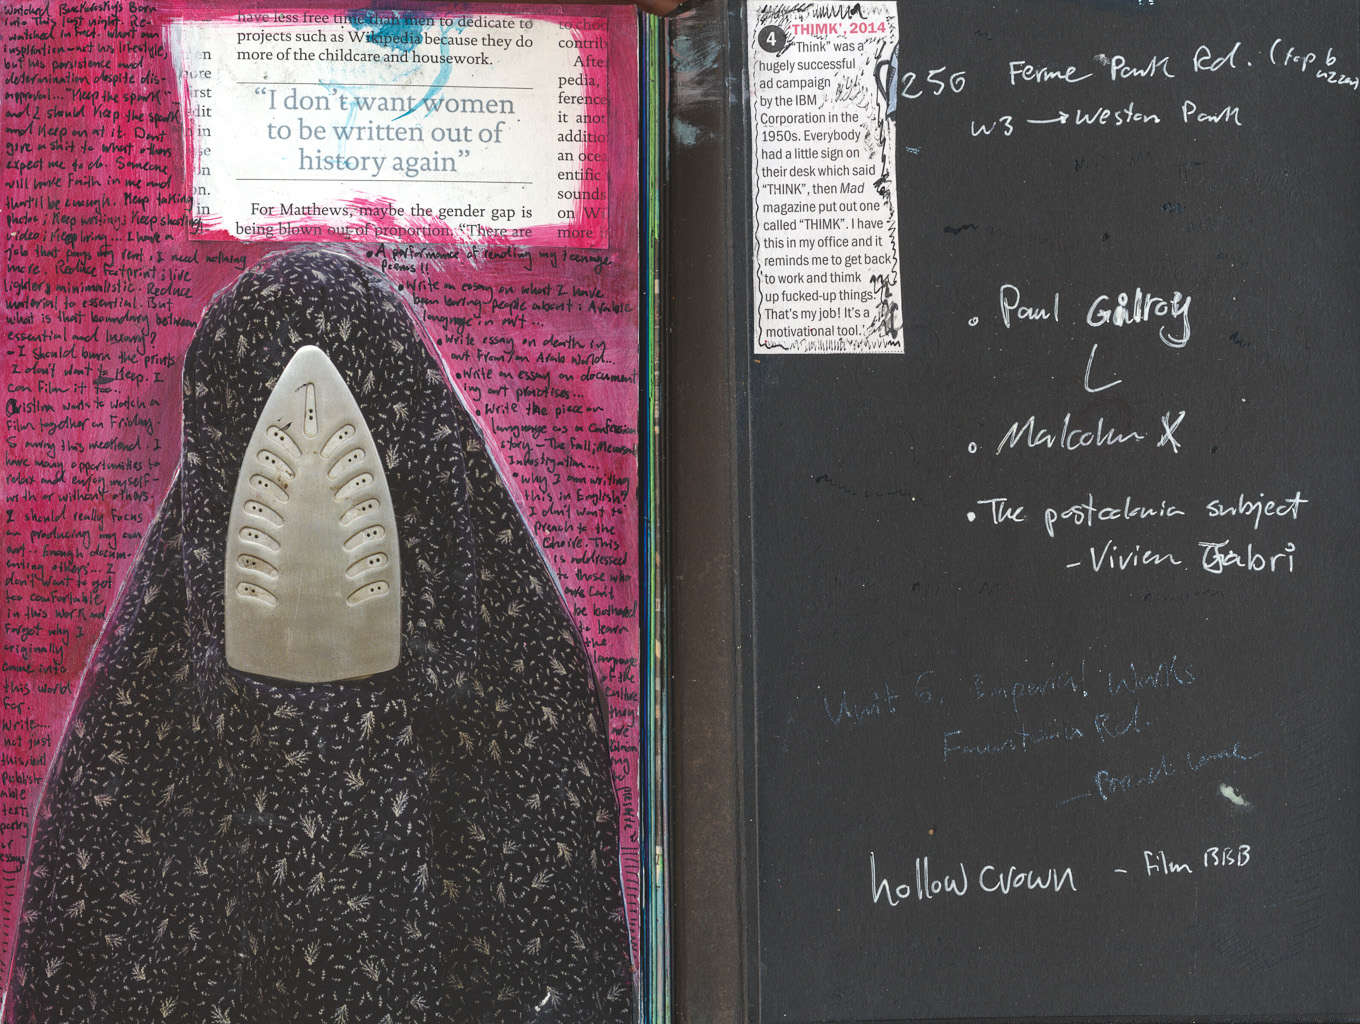 Watched Bukowskys Born
into This last night. Re-
watched in fact. What an
inspiration - not his lifestyle,
but his persistence and
determination despite dis-
approval... "Keep the spark"
and I should keep the spark
and keep on at it. Dont
give a shit to what others
expect me to do. Someone
will have faith in me and
that'll be enough. Keep taking
photos; keep writing; keep shooting
video; keep living... I have a
job that pays my rent. I need nothing
more. Reduce footprint; live
lighter; minimalistic. Reduce
material to essential. But
what is that boundary between
essential and luxury?
- I should burn the prints
I don't want to keep. I
can film it too..
Cristina wants to watch a
film together on Friday.
I
have many opportunities to
relax and enjoy myself -
with or without others.
I should really focus
on producing my own
art.. Enough docum-
enting others... I
don't want to get
too comfortable
in this world and
forget why I
originally
came into
this world
for.
Write...
not just
this, but
publish-
able
texts
poetry
or
essays
have less free time than men to dedicate to
projects such as Wikipedia because they do
more of the childcare and housework.
“I don’t want women
to be written out of
history again”
For Matthews, maybe the gender gap is
being blown out of proportion. “There are
contrib
Afte
pedia,
ference
it anot
additio
an ocea
entific
sounds
on WI
more
• A performance of reading my teenage
poems!!
• Write an essay on what I have
been boring people about: Arabic
language in art...
• Write essay on death in
art from/on Arab World...
• Write an essay on document
ing art practises...
• Write the piece on
language as a confession
story - The Fall; Memorial
Investigation...
• Why I am writing
this in English?
I don't want to
preach to the
choire. This
is addressed
to those who
can't
be bothered
to learn
the
language
of the
culture
they
are
4
‘THIMK’, 2014
“Think” was a
hugely successful
ad campaign
by the IBM
Corporation in the
1950s. Everybody
had a little sign on
their desk which said
“THINK”, then Mad
magazine put out one
called “THIMK”. I have
this in my office and it
reminds me to get back
to work and thimk
up fucked-up things.
That’s my job! It’s a
motivational tool.’
250 Ferme Park Rd. (top b
uzzer)
W3 → Weston Park
• Paul Gilroy
• Malcolm X
• The postcolonia subject
- Vivien Jabri
Unit 6, Imperial Works
Fountain Rd.
hollow crown - Film BBB